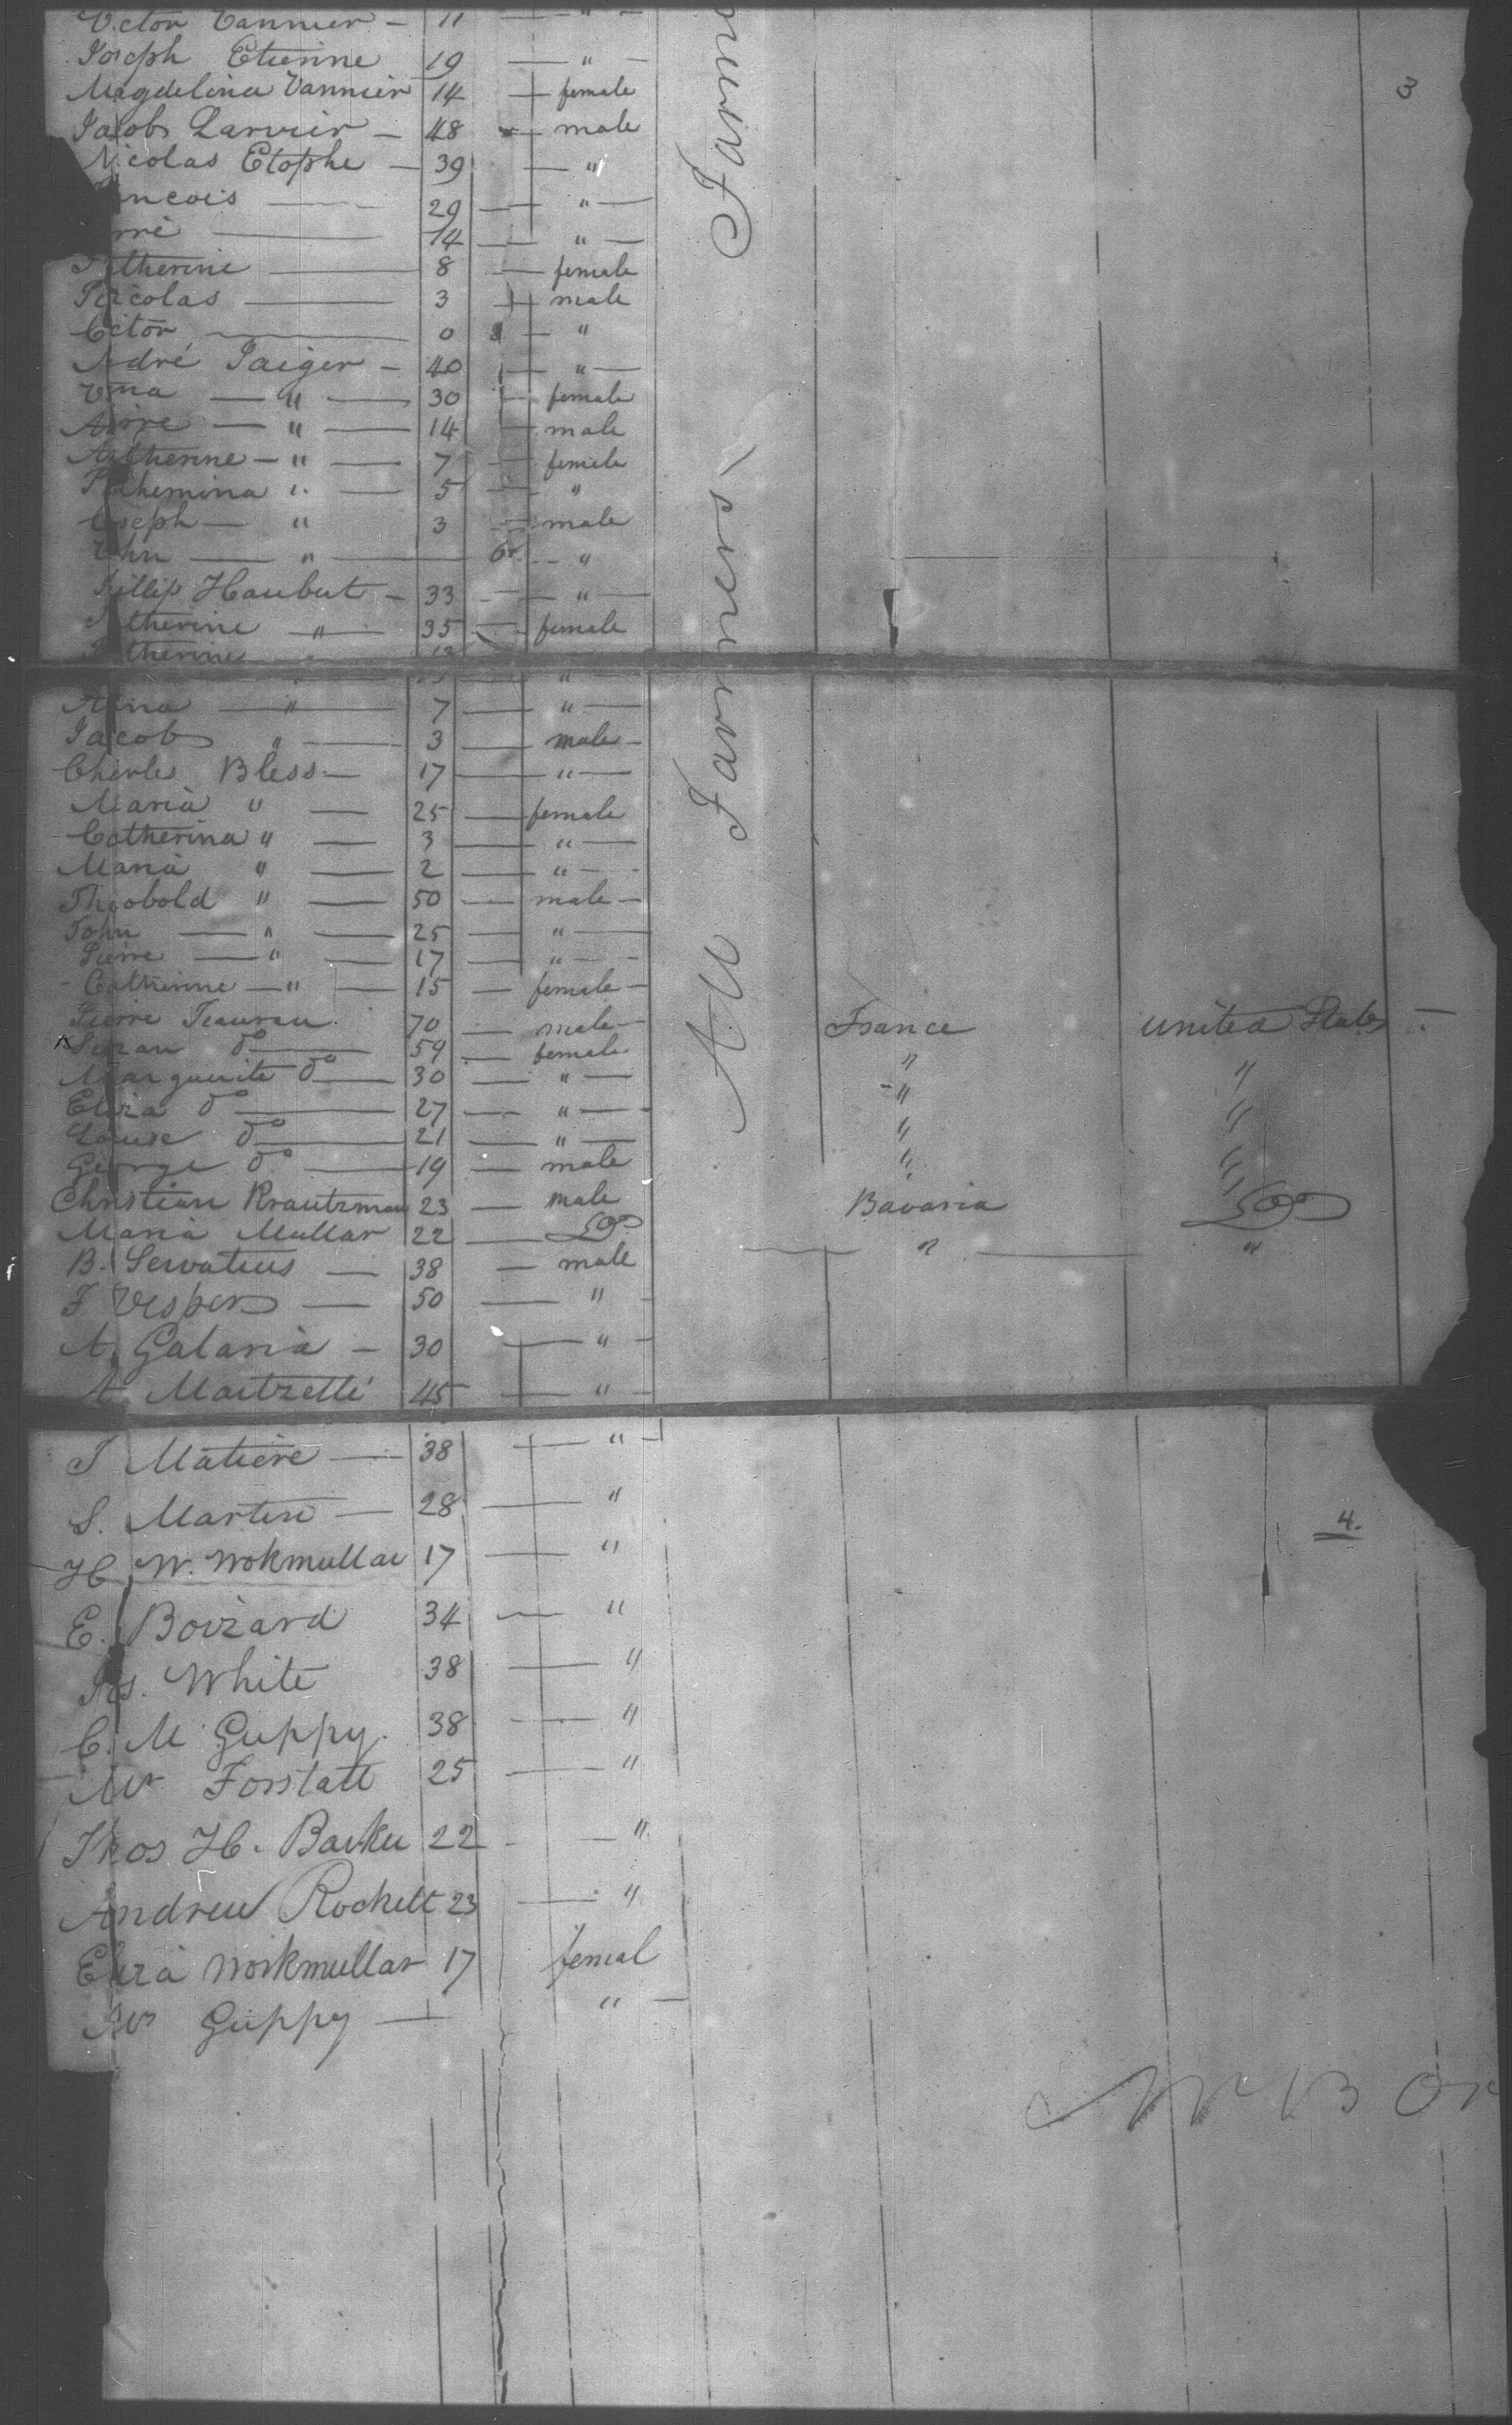 Victor Vannier - 11 — " -
Joseph Etienne 19 — " -
Magdelina Vannier 14 — female
Jacob Larvier - 48 - male
Nicolas Etophe - 39 — "
ncois — 29 — " —
rré — 14 — " —
therine — 8 — female
colas — 3 — male
ctor — 0 — "
dré Jaiger - 40 — " —
na — " — 30 — female
dre — " — 14 — male
therine - " — 7 — female
lhemina " — 5 — "
seph — " 3 — male
hn — " — — "
illip Haubut - 33 — " —
therine " — 35 — female
therine " 12
" — " —
Anna — " — 7 — " —
Jacob " — 3 — male -
Charles Bless — 17 — " —
Maria " — 25 — female
Catherina " — 3 — " —
Maria " — 2 — " — -
Theobold " — 50 — male -
John — " — 25 — " —
Pierre — " — 17 — " — -
Catherine — " — 15 — female -
Pierre Jeaurau 70 — male - France united States -
Do — 59 — female " "
Marguerite Do — 30 — " — " "
Eliza Do — 27 — " — " "
Louise Do — 21 — " — " "
George Do — 19 — male "
Christian Krautzman 23 — male Bavaria Do
Maria Mullar 22 — Do — " — "
B. Servatius — 38 — male
F Vesper — 50 — " -
A. Galaria - 30 — " -
A. Maitzetti 45 — " -
All Farmers Farme
3
J Matiere — 38 — " -
S. Martin — 28 — "
H W. Wokmullar 17 — "
4.
E. Boizard 34 — "
Jas. White 38 — "
C. M Guppy. 38 — "
Mr Forstall 25 — "
Thos H. Barker 22 - — "
Andrew Rockett 23 — "
Eliza Workmullar 17 femal
Guppy — " —